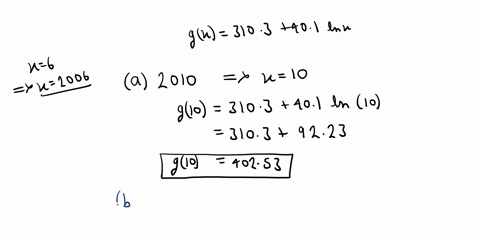 g(x) = 310.3 + 40.1 ln x
x=6
=> x=2006
(a) 2010 => x = 10
g(10) = 310.3 + 40.1 ln (10)
= 310.3 + 92.23
g(10) = 402.53
(b